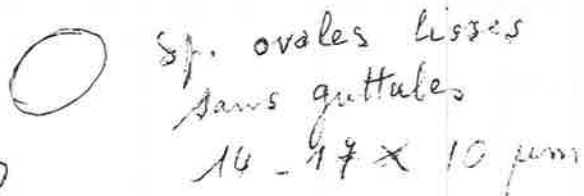 Sp. ovales lisses
sans guttules
14-17 × 10 µm